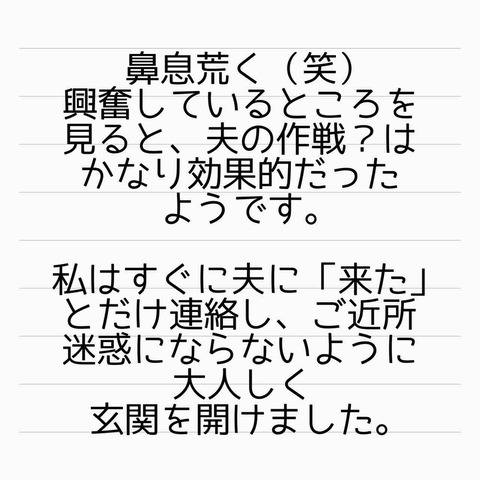 鼻息荒く（笑）
興奮しているところを
見ると、夫の作戦？は
かなり効果的だった
ようです。
私はすぐに夫に「来た」
とだけ連絡し、ご近所
迷惑にならないように
大人しく
玄関を開けました。